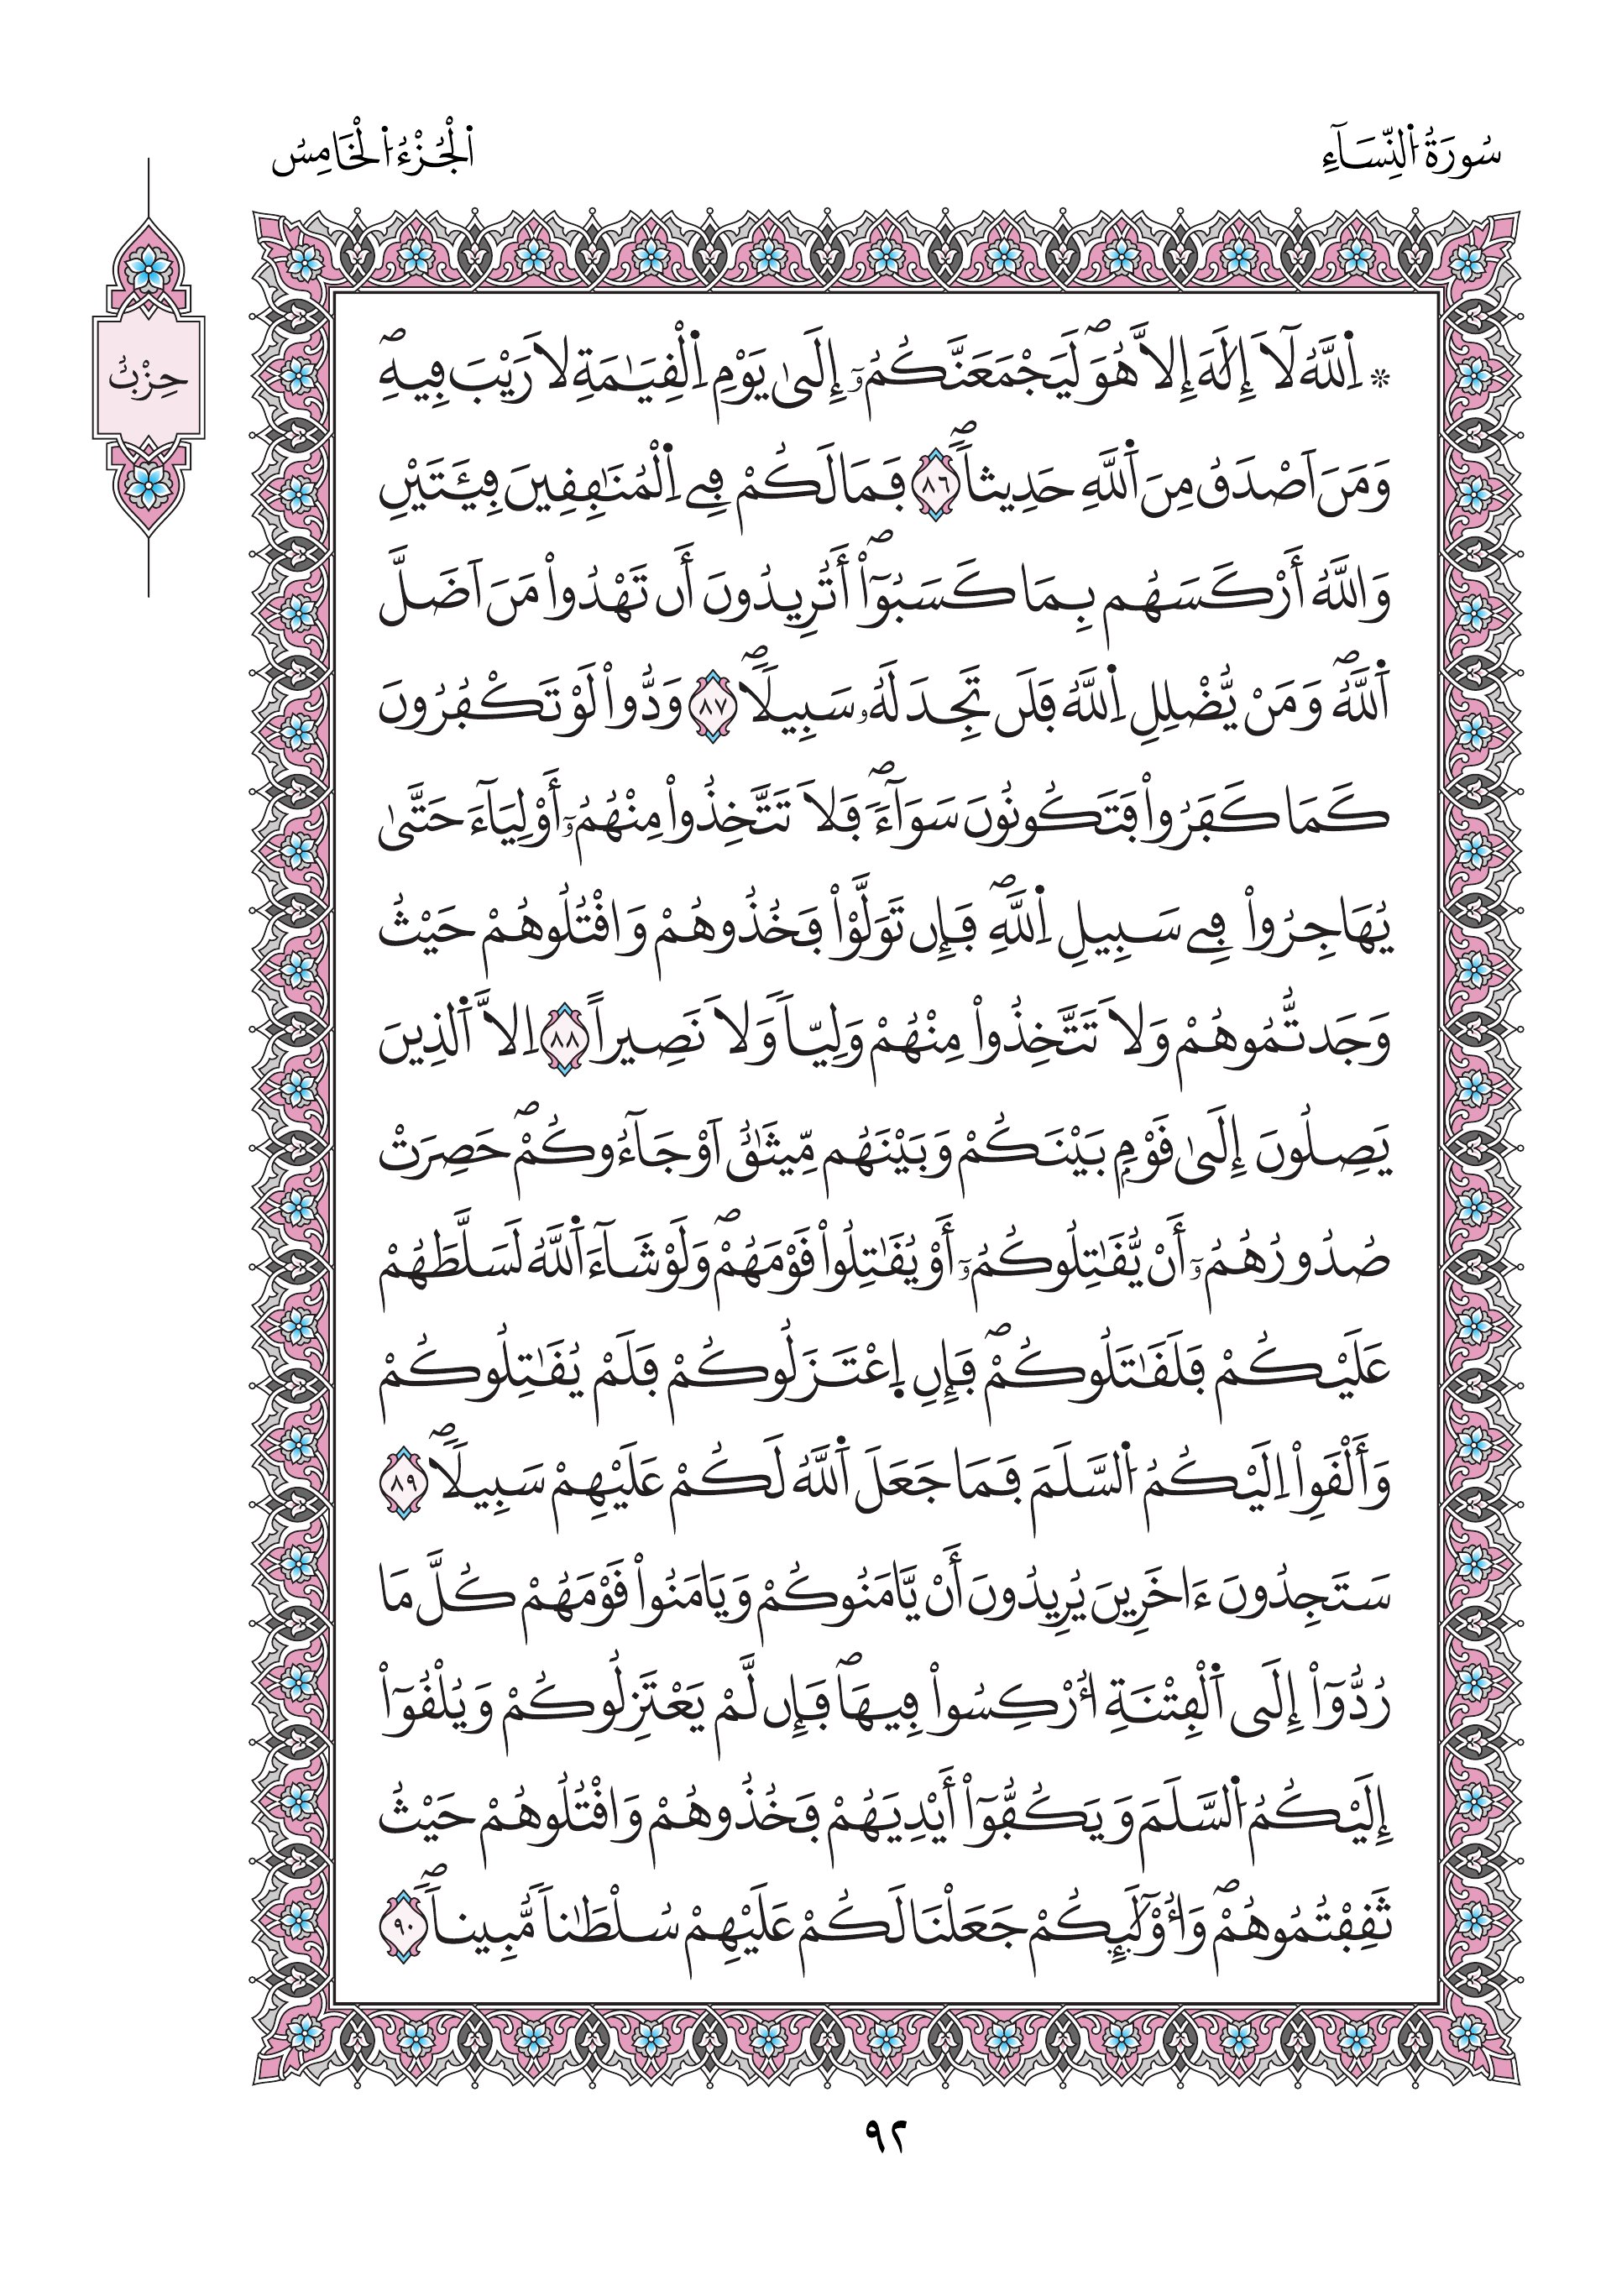 سُورَةُ اُ۬لنِّسَآءِ
اَ۬لْجُزْءُ اُ۬لْخَامِسُ
حِزْبٌ
۞ اِ۬للَّهُ لَآ إِلَٰهَ إِلَّا هُوَۖ لَيَجْمَعَنَّكُمُۥٓ إِلَىٰ يَوْمِ اِ۬لْقِيَٰمَةِ لَا رَيْبَ فِيهِۖ
وَمَنَ اَصْدَقُ مِنَ اَ۬للَّهِ حَدِيثاٗۖ ٨٦ فَمَا لَكُمْ فِے اِ۬لْمُنَٰفِقِينَ فِئَتَيْنِ
وَاللَّهُ أَرْكَسَهُم بِمَا كَسَبُوٓاْۖ أَتُرِيدُونَ أَن تَهْدُواْ مَنَ اَضَلَّ
اَ۬للَّهُۖ وَمَنْ يُّضْلِلِ اِ۬للَّهُ فَلَن تَجِدَ لَهُۥ سَبِيلاٗۖ ٨٧ وَدُّواْ لَوْ تَكْفُرُونَ
كَمَا كَفَرُواْ فَتَكُونُونَ سَوَآءٗۖ فَلَا تَتَّخِذُواْ مِنْهُمُۥٓ أَوْلِيَآءَ حَتَّىٰ
يُهَاجِرُواْ فِے سَبِيلِ اِ۬للَّهِۖ فَإِن تَوَلَّوْاْ فَخُذُوهُمْ وَاقْتُلُوهُمْ حَيْثُ
وَجَدتُّمُوهُمْ وَلَا تَتَّخِذُواْ مِنْهُمْ وَلِيّاٗ وَلَا نَصِيراً ٨٨ اِلَّا اَ۬لذِينَ
يَصِلُونَ إِلَىٰ قَوْمِۢ بَيْنَكُمْ وَبَيْنَهُم مِّيثَٰقٌ اَوْ جَآءُوكُمْۖ حَصِرَتْ
صُدُورُهُمُۥٓ أَنْ يُّقَٰتِلُوكُمُۥٓ أَوْ يُقَٰتِلُواْ قَوْمَهُمْۖ وَلَوْ شَآءَ اَ۬للَّهُ لَسَلَّطَهُمْ
عَلَيْكُمْ فَلَقَٰتَلُوكُمْۖ فَإِنِ اِ۪عْتَزَلُوكُمْ فَلَمْ يُقَٰتِلُوكُمْ
وَأَلْقَوِاْ اِلَيْكُمُ اُ۬لسَّلَمَ فَمَا جَعَلَ اَ۬للَّهُ لَكُمْ عَلَيْهِمْ سَبِيلاٗۖ ٨٩
سَتَجِدُونَ ءَاخَرِينَ يُرِيدُونَ أَنْ يَّامَنُوكُمْ وَيَامَنُواْ قَوْمَهُمْ كُلَّ مَا
رُدُّوٓاْ إِلَى اَ۬لْفِتْنَةِ أُرْكِسُواْ فِيهَاۖ فَإِن لَّمْ يَعْتَزِلُوكُمْ وَيُلْقُوٓاْ
إِلَيْكُمُ اُ۬لسَّلَمَ وَيَكُفُّوٓاْ أَيْدِيَهُمْ فَخُذُوهُمْ وَاقْتُلُوهُمْ حَيْثُ
ثَقِفْتُمُوهُمْۖ وَأُوْلَٰٓئِكُمْ جَعَلْنَا لَكُمْ عَلَيْهِمْ سُلْطَٰناٗ مُّبِيناٗۖ ٩٠
٩٢